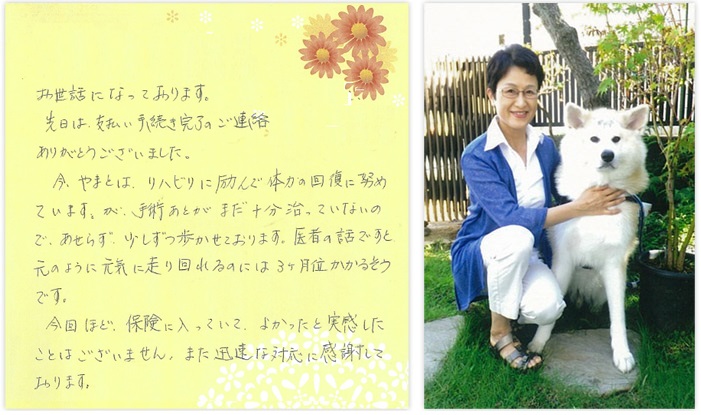 お世話になっております。
先日は、支払い手続き完了のご連絡
ありがとうございました。
今、やまとは、リハビリに励んで体力の回復に努め
ています。が、手術あとがまだ十分治っていないの
で、あせらず、少しずつ歩かせております。医者の話ですと
元のように元気に走り回れるのには3ヶ月位かかるそう
です。
今回ほど、保険に入っていて、よかったと実感した
ことはございません。また迅速な対応に感謝して
おります。